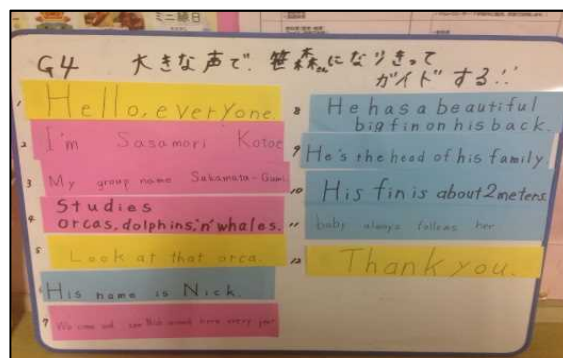 ミニ縁日
G4 大きな声で、笹森さんになりきって
ガイドする!!
1 Hello, everyone.
2 I'm Sasamori Kotoe
3 My group name Sakamata-Gumi.
4 Studies
orcas, dolphins, 'n' whales.
5 Look at that orca.
6 His name is Nick.
7 We come and see Nick around here every year
8 He has a beautiful
big fin on his back.
9 He's the head of his family
10 His fin is about 2 meters.
11 baby always follows her
12 Thank you.